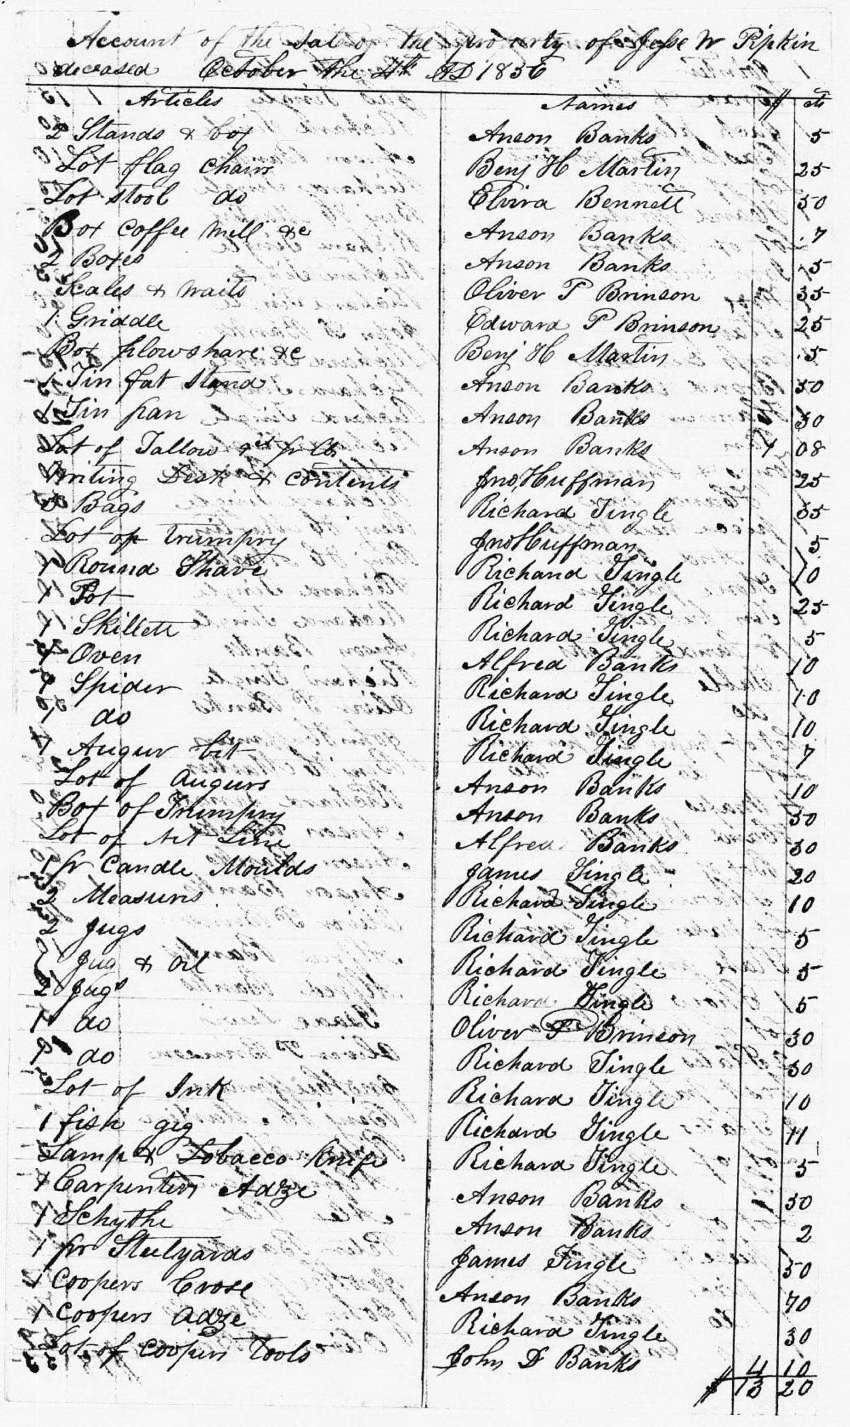 Account of the Sale of the property of Jesse W Pipkin
deceased October the 4th AD 1856
Articles Names $ cts
2 Stands & box Anson Banks 5
Lot flag chairs Benj H Martin 25
Lot stool do Elvira Bennett 50
Box coffee mill &c Anson Banks 7
2 Boxes Anson Banks 5
Scales & waits Oliver P Brinson 35
1 Griddle Edward P Brinson 25
Box plowshare &c Benj H Martin 5
1 Tin fat stand Anson Banks 50
1 Tin pan Anson Banks 30
Lot of Tallow pr lb Anson Banks 1 08
Writing Desk & contents Jno Huffman 25
Bags Richard Tingle 35
Lot of trumpry Jno Huffman 5
1 Round Shave Richard Tingle 10
1 Pot Richard Tingle 25
1 Skillett Richard Tingle 5
1 Oven Alfred Banks 10
1 Spider Richard Tingle 10
1 do Richard Tingle 10
1 Augur bit Richard Tingle 7
Lot of augurs Anson Banks 10
Box of Trumpry Anson Banks 50
Lot of Net Line Alfred Banks 30
1 pr Candle Moulds James Tingle 20
2 Measures Richard Tingle 10
2 Jugs Richard Tingle 5
1 Jug & oil Richard Tingle 5
2 Jugs Richard Tingle 5
1 do Oliver P Brinson 30
1 do Richard Tingle 50
Lot of Ink Richard Tingle 10
1 fish gig Richard Tingle 11
Lamp & Tobacco Knife Richard Tingle 5
1 Carpenters Adze Anson Banks 50
1 Schythe Anson Banks 2
1 pr Steelyards James Tingle 50
1 Coopers Crose Anson Banks 70
1 Coopers adze Richard Tingle 30
Lot of coopers tools John D Banks 4 10
$ 13 20